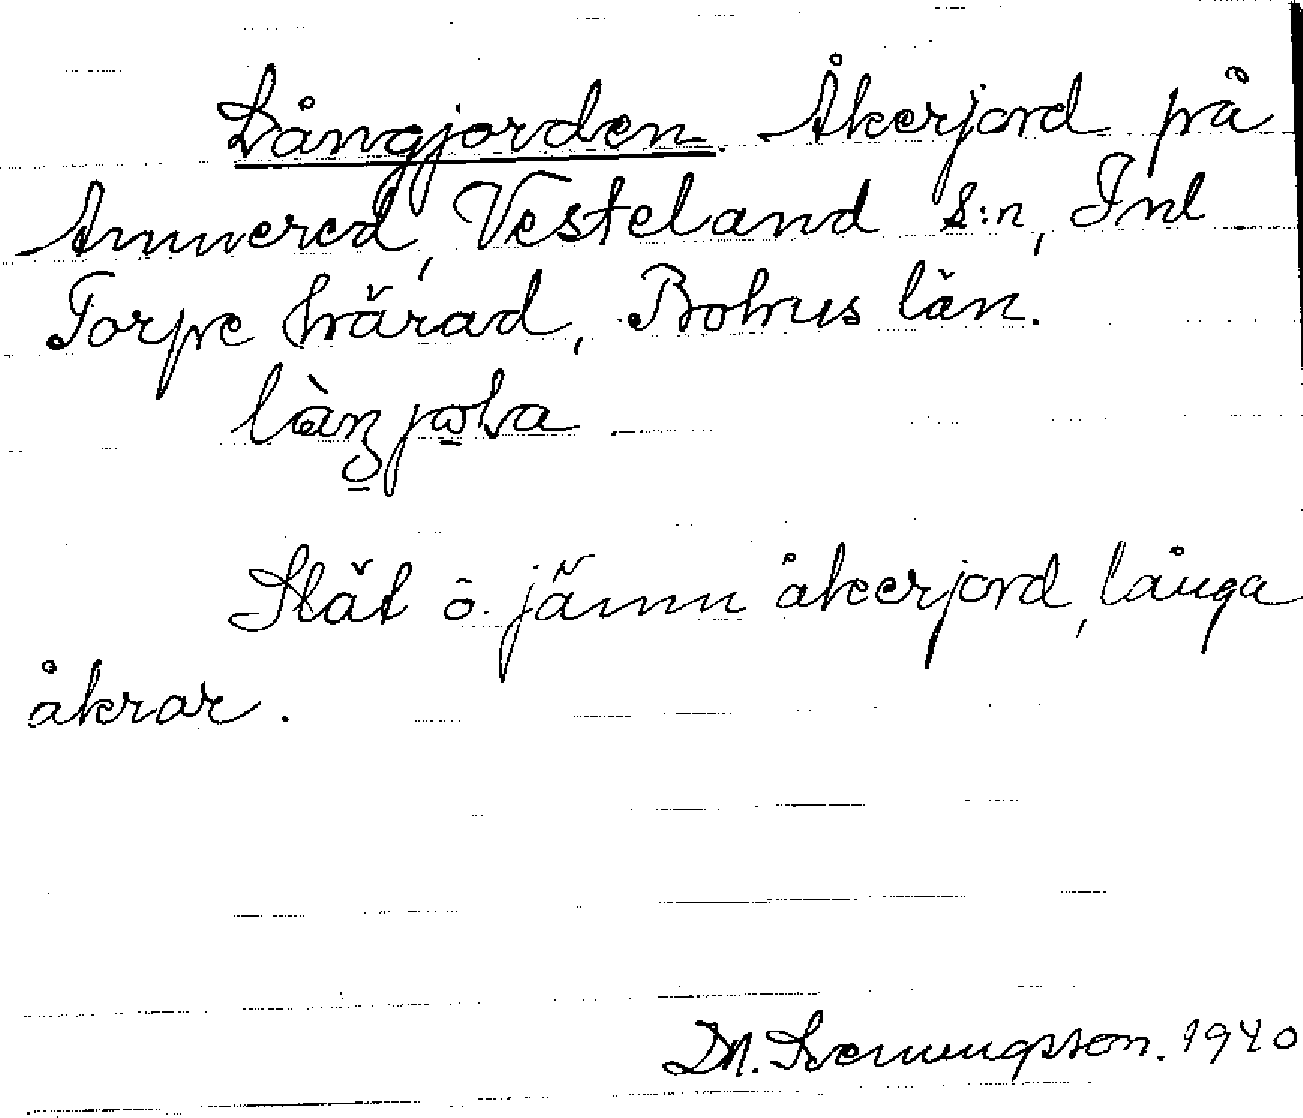 Långjorden. Åkerjord på
Annered, Vesteland s:n, Inl
Torpe härad, Bohus län.
Slät ö. jämn åkerjord, långa
åkrar.
D.A. Svenungsson. 1940